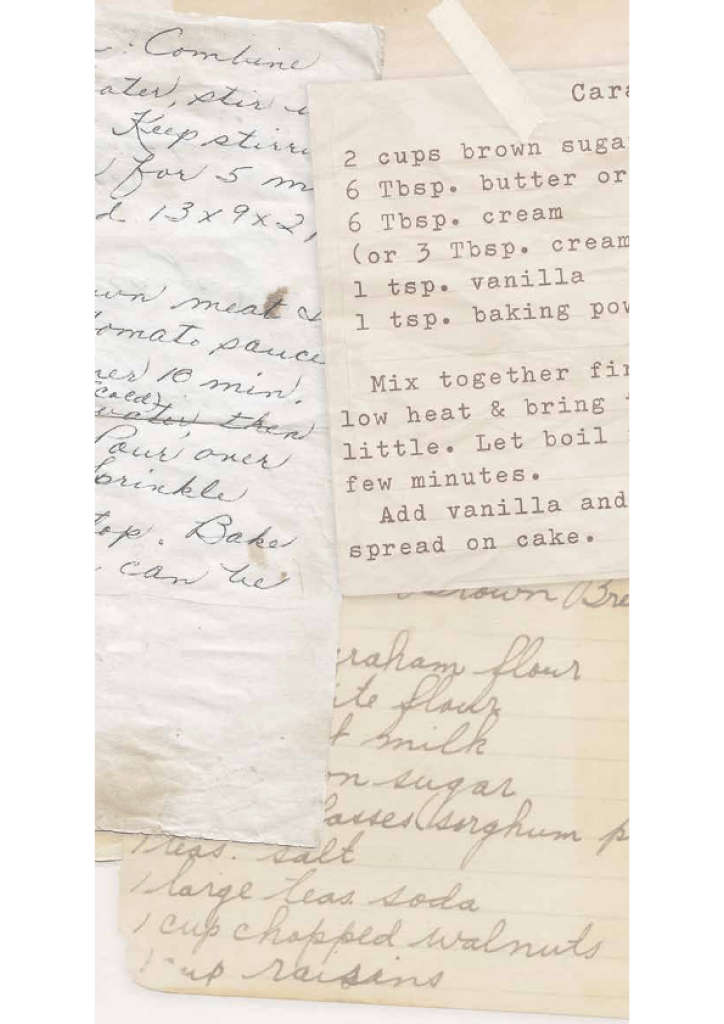 : Combine
ater, stir
Keep stirr
for 5 m
d 13x9x2,
wn meat &
tomato sauce
er 10 min.
(cold)
water, then
Pour over
prinkle
top. Bake
can be
Cara
2 cups brown suga
6 Tbsp. butter or
6 Tbsp. cream
(or 3 Tbsp. cream
1 tsp. vanilla
1 tsp. baking pow
Mix together fir
low heat & bring t
little. Let boil
few minutes.
Add vanilla and
spread on cake.
Brown Bre
raham flour
ite flour
t milk
on sugar
lasses (sorghum p
1 teas. salt
1 large teas. soda
1 cup chopped walnuts
1 cup raisins